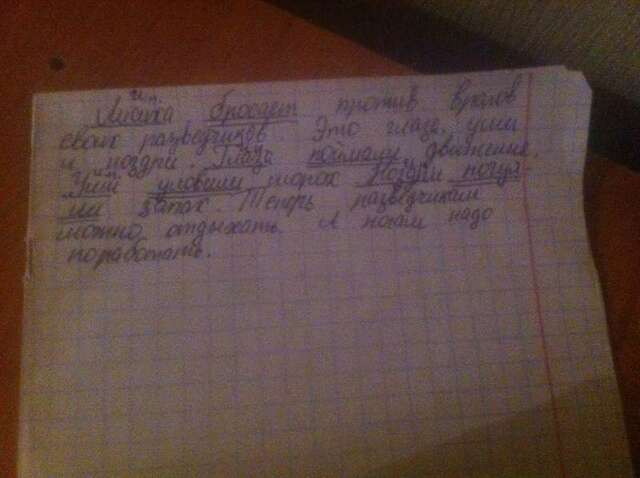 и.п.
Лисичка бросает против врагов
своих разведчиков. Это глаза, уши
и ноздри. Глаза поймали движение.
Уши уловили шорох. Ноздри почуя-
ли запах. Теперь разведчикам
можно отдыхать. А ногам надо
поработать.